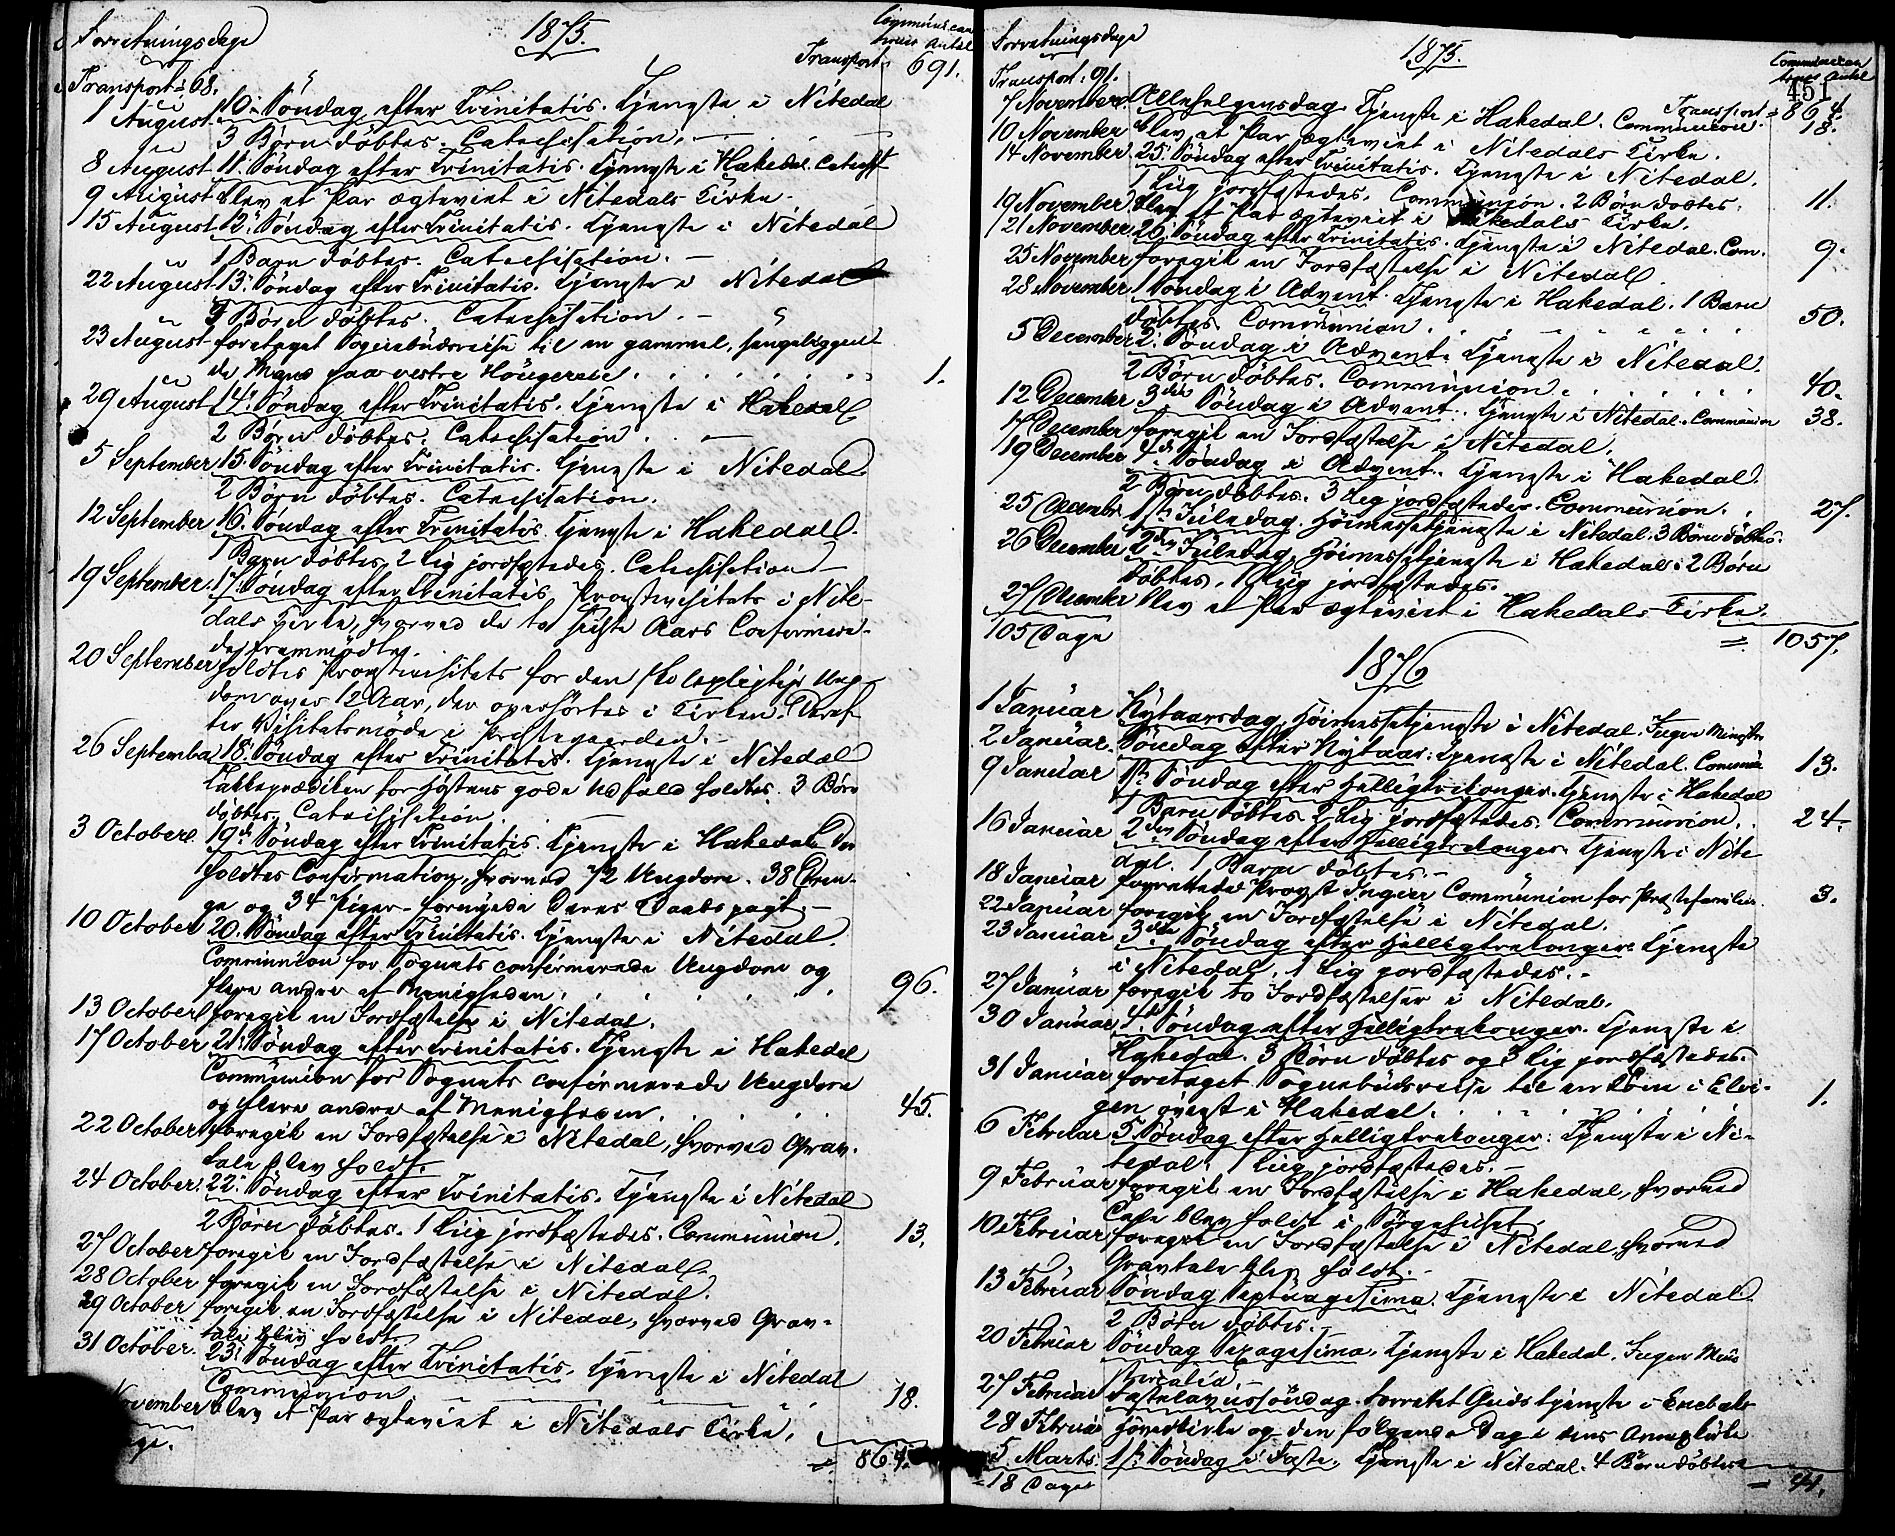 Forretningsdage 1875. Communicanternes Antal
Transport = 68. Transport = 691.
1 August 10. Söndag efter Trinitatis. Tjeneste i Nitedal
3 Børn döbtes. Catechisation.
8 August 11. Söndag efter Trinitatis. Tjeneste i Hakedal. Catechis.
9 August blev et Par ægteviet i Nitedals Kirke.
15 August 12. Söndag efter Trinitatis. Tjeneste i Nitedal
1 Barn döbtes. Catechisation.
22 August 13. Söndag efter Trinitatis. Tjeneste i Nitedal
3 Børn döbtes. Catechisation.
23 August foretaget Sognebudsreise til en gammel, sengeliggen-
de Mand paa vestre Höugereie. 1.
29 August 14. Söndag efter Trinitatis. Tjeneste i Hakedal
2 Børn döbtes. Catechisation.
5 September 15. Söndag efter Trinitatis. Tjeneste i Nitedal
2 Børn döbtes. Catechisation.
12 September 16. Söndag efter Trinitatis. Tjeneste i Hakedal.
1 Barn döbtes, 2 Lig jordfæstedes. Catechisation
19 September 17. Söndag efter Trinitatis. Provstevisitats i Nite-
dals Kirke, hvorved de to sidste Aars Confirmere-
de fremmödte.
20 September holdtes Provstevisitats for den skolepligtige Ung-
dom over 12 Aar, der overhörtes i Kirken. Deref-
ter Visitatsmöde i Præstegaarden.
26 September 18. Söndag efter Trinitatis. Tjeneste i Nitedal
Takkeprædiken for Höstens gode Udfald holdtes. 3 Børn
döbtes. Catechisation.
3 October 19. Söndag efter Trinitatis. Tjeneste i Hakedal. Der
holdtes Confirmation, hvorved 72 Ungdom. 38 Dren-
ge og 34 Piger fornyede deres Daabspagt.
10 October 20. Söndag efter Trinitatis. Tjeneste i Nitedal.
Communion for Sognets confirmerede Ungdom og
flere andre af Menigheden. 96.
13 October foregik en Jordfæstelse i Nitedal.
17 October 21. Söndag efter Trinitatis. Tjeneste i Hakedal
Communion for Sognets confirmerede Ungdom
og flere andre af Menigheden. 45.
22 October foregik en Jordfæstelse i Nitedal, hvorved Grav-
tale blev holdt.
24 October. 22. Söndag efter Trinitatis. Tjeneste i Nitedal
2 Børn döbtes. 1 Liig jordfæstedes. Communion. 13.
27 October foregik en Jordfæstelse i Nitedal.
28 October foregik en Jordfæstelse i Nitedal.
29 October foregik en Jordfæstelse i Nitedal, hvorved Grav-
tale blev holdt.
31 October. 23. Söndag efter Trinitatis. Tjeneste i Nitedal
Communion. 18.
November blev et Par ægteviet i Nitedals Kirke.
= 864.
Forretningsdage 1875. Communicanternes Antal
451
Transport: 91. Transport = 864.
7 November. Allehelgensdag. Tjeneste i Hakedal. Communion. 18.
10 November blev et Par ægteviet i Nitedals Kirke.
14 November 25. Söndag efter Trinitatis. Tjeneste i Nitedal.
1 Liig jordfæstedes. Communion. 2 Børn döbtes. 11.
19 November blev et Par ægteviet i Hakedals Kirke.
21 November 26. Söndag efter Trinitatis. Tjeneste i Nitedal. Com. 9.
25 November foregik en Jordfæstelse i Nitedal.
28 November 1 Söndag i Advent. Tjeneste i Hakedal. 1 Barn
döbtes. Communion. 50.
5 December 2. Söndag i Advent. Tjeneste i Nitedal.
2 Børn döbtes. Communion. 40.
12 December 3die Söndag i Advent. Tjeneste i Nitedal. Communion 38.
17 December foregik en Jordfæstelse i Nitedal.
19 December 4de Söndag i Advent. Tjeneste i Hakedal.
2 Børn döbtes. 3 Lig jordfæstedes. Communion. 27.
25 December 1ste Juledag. Höimessetjeneste i Nitedal. 3 Børn döbtes.
26 December 2den Juledag, Höimessetjeneste i Hakedal: 2 Børn
döbtes. 1 Liig jordfæstedes.
27 December blev et Par ægteviet i Hakedals Kirke.
105 Dage = 1057.
1876
1 Januar Nytaarsdag, Höimessetjeneste i Nitedal.
2 Januar. Söndag efter Nytaar. Tjeneste i Nitedal. Commun 13.
9 Januar 1ste Söndag efter Helligtrekonger. Tjeneste i Hakedal
1 Barn döbtes. 2 Lig jordfæstedes. Communion. 24.
16 Januar 2den Söndag efter Helligtrekonger. Tjeneste i Nite
dal. 1 Barn döbtes.
18 Januar forrettede Provst Communion for Præstefamilien. 3.
22 Januar foregik en Jordfæstelse i Nitedal.
23 Januar 3die Söndag efter Helligtrekonger. Tjeneste
i Nitedal. 1 Lig jordfæstedes.
27 Januar foregik to Jordfæstelser i Nitedal.
30 Januar 4de Söndag efter Helligtrekonger. Tjeneste i
Hakedal. 3 Børn döbtes og 3 Lig jordfæstedes.
31 Januar foretaget Sognebudsreise til en Kone i Elvi-
gen øverst i Hakedal. 1.
6 Februar 5 Söndag efter Helligtrekonger. Tjeneste i Ni-
tedal. 1 Liig jordfæstedes.
9 Februar foregik en Jordfæstelse i Hakedal, hvorved
Tale blev holdt i Sörgehuset.
10 Februar foregik en Jordfæstelse i Nitedal, hvorved
Gravtale blev holdt.
13 Februar Söndag Septuagesima. Tjeneste i Nitedal.
2 Børn döbtes.
20 Februar Söndag Sexagesima. Tjeneste i Hakedal. Ingen Minis
terialia.
27 Februar Fastelavnssöndag. Forrettet Gudstjeneste i Enebaks
28 Februar Hovedkirke og den følgende Dag i dens Annexkirke
5 Marts. 1ste Söndag i Faste. Tjeneste i Nitedal. 4 Børn döbtes
18 Dage = 41.